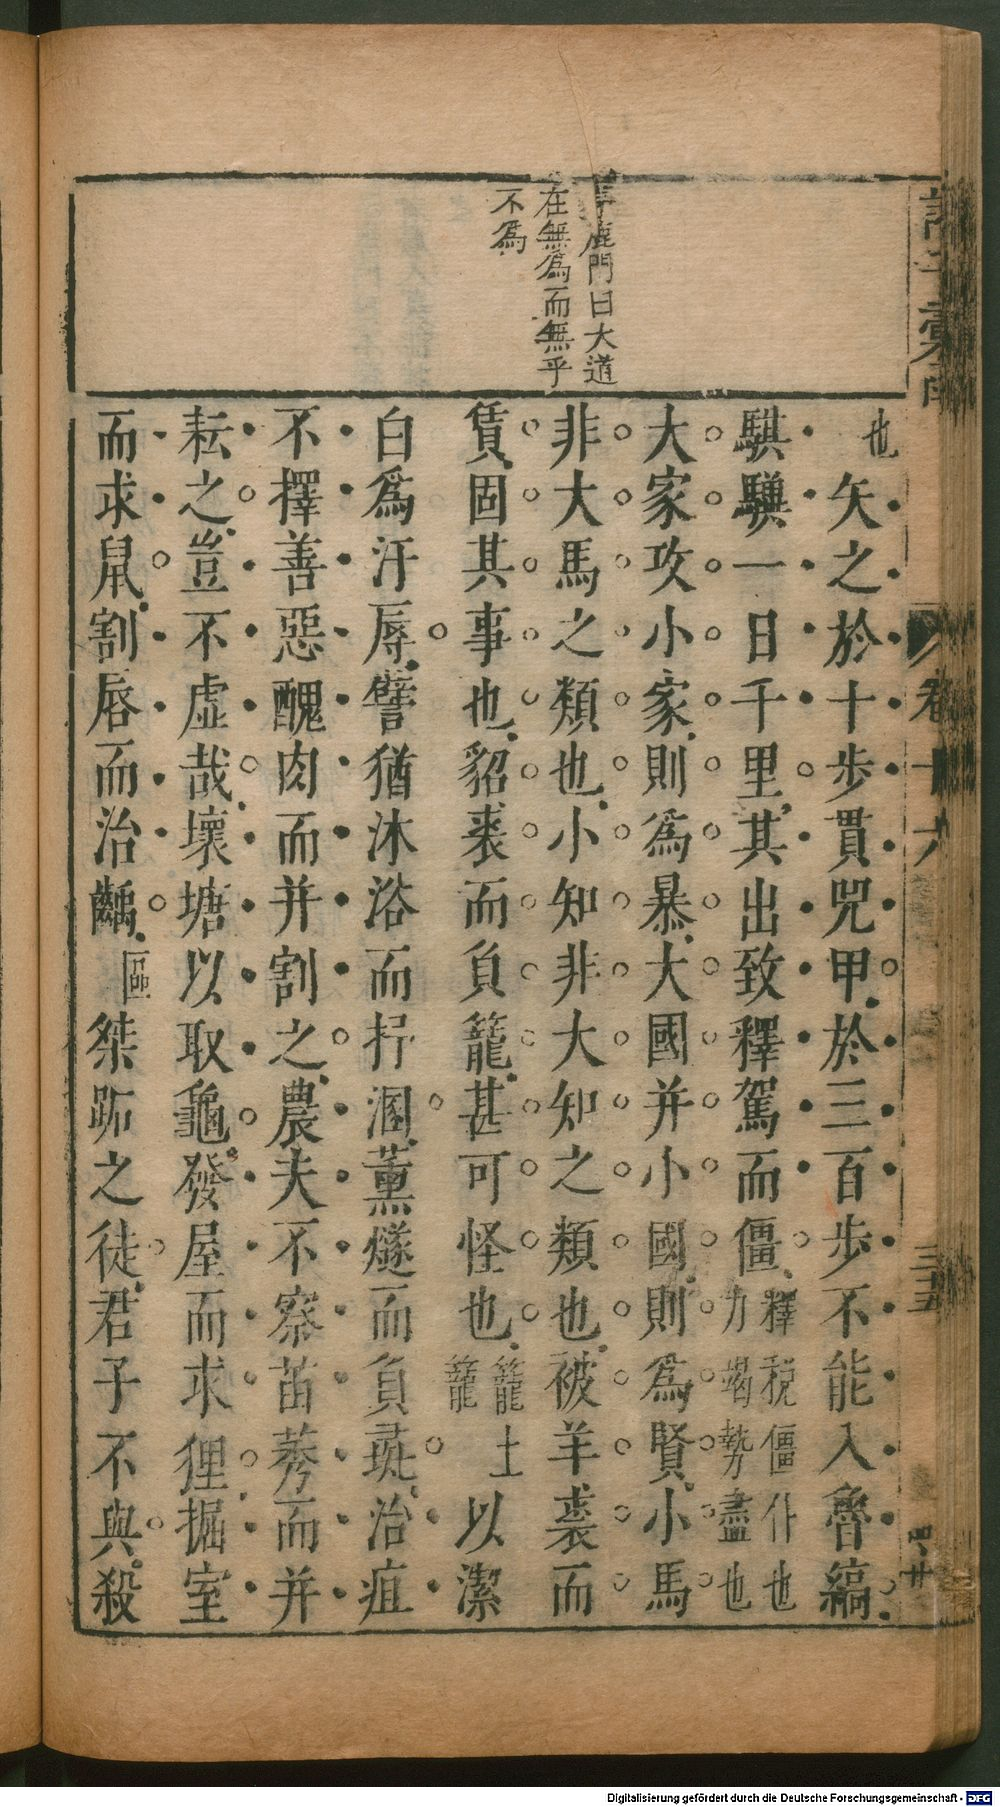 鹿門曰大道
在無為而無乎
不為
也矢之於十步貫兕甲於三百步不能入魯縞
騏驥一日千里其出致釋駕而僵釋稅僵仆也力竭勢盡也
大家攻小家則為暴大國并小國則為賢小馬
非大馬之類也小知非大知之類也被羊裘而
賃固其事也貂裘而負籠甚可怪也籠土籠以潔
白爲汙辱譬猶沐浴而抒溷薰燧而負彘治疽
不擇善惡醜肉而并割之農夫不察苗莠而并
耘之豈不虛哉壞塘以取龜發屋而求狸掘室
而求鼠割唇而治齲區桀跖之徒君子不與殺
卷十六
Digitalisierung gefördert durch die Deutsche Forschungsgemeinschaft - DFG